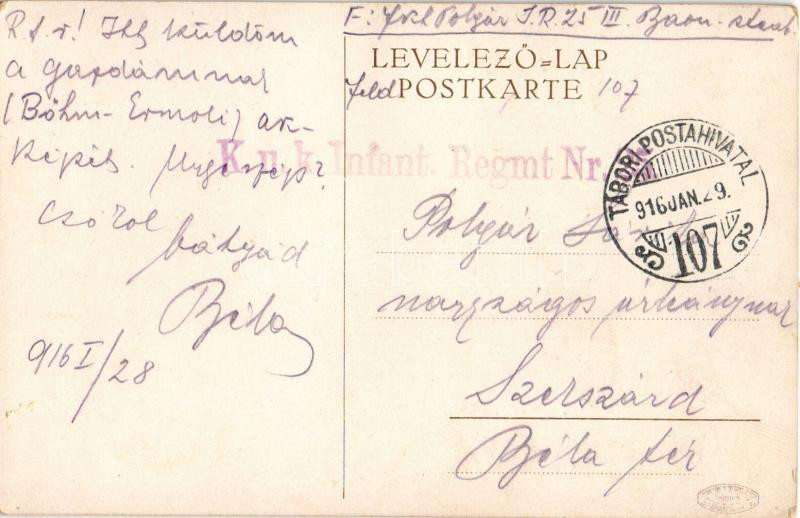 R. f. r! Itt küldöm
a gazdámnak
(Böhm-Ermoli) arc-
képét. Ugye szép?
Csókol
bátyád
Béla
916 I/28
F: Polgár I.R. 25 III. Baon.
LEVELEZŐ=LAP
feldPOSTKARTE 107
K. u. k. Infant. Regmt Nr.
TÁBORI POSTAHIVATAL
916 JAN. 29.
107
Polgár
úrhölgynek
Szekszárd
Béla tér